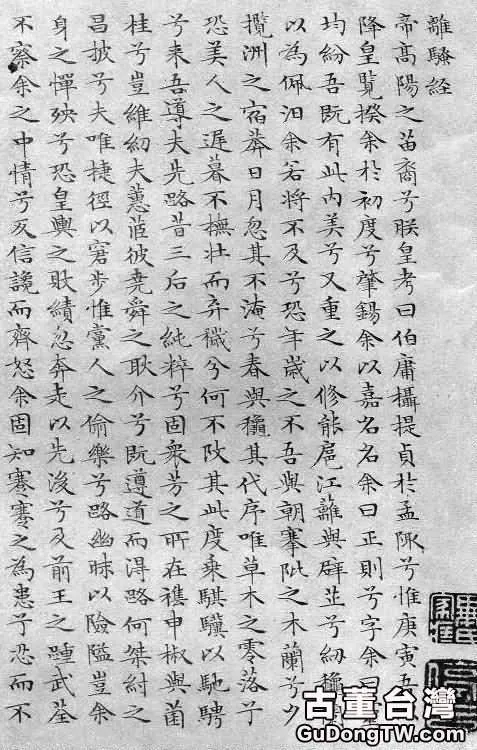 離騷經
帝高陽之苗裔兮朕皇考曰伯庸攝提貞於孟陬兮惟庚寅吾
降皇覽揆余於初度兮肇錫余以嘉名名余曰正則兮字余曰
均紛吾既有此內美兮又重之以修能扈江蘺與辟芷兮紉穐
以為佩汨余若將不及兮恐年歲之不吾與朝搴阰之木蘭兮夕
攬洲之宿莽日月忽其不淹兮春與穐其代序唯草木之零落兮
恐美人之遲暮不撫壯而弃穢兮何不改其此度乘騏驥以馳騁
兮来吾導夫先路昔三后之純粹兮固衆芳之所在襍申椒與菌
桂兮豈維紉夫蕙茝彼堯舜之耿介兮既遵道而得路何桀紂之
昌披兮夫唯捷徑以窘步惟黨人之偷樂兮路幽昧以險隘豈余
身之憚殃兮恐皇輿之敗績忽奔走以先後兮及前王之踵武荃
不察余之中情兮反信讒而齊怒余固知謇謇之為患兮忍而不
古董台灣
GuDongTW.com